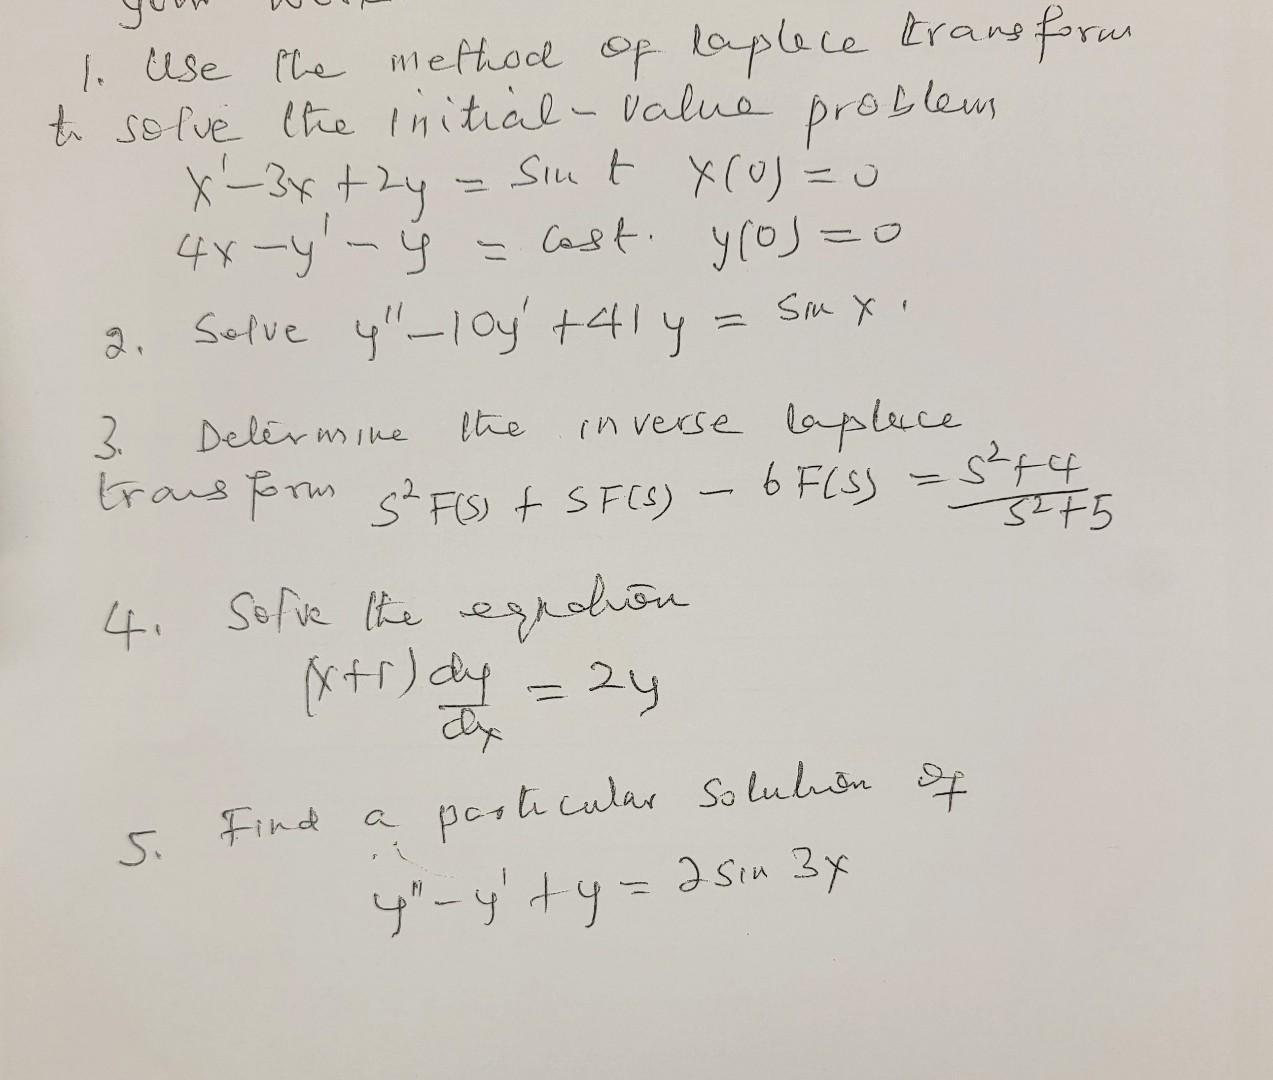 1. Use the method of laplace transform
to solve the initial-value problem
x'-3x+2y = Sin t x(0)=0
4x-y'-y = Cost. y(0)=0
2. Solve y''-10y'+41y = Sin x.
3. Determine the inverse laplace
transform s²F(s) + SF(s) - 6F(s) = s²+4
s²+5
4. Solve the equation
(x+1) dy = 2y
dx
5. Find a particular solution of
y''-y'+y = 2 sin 3x